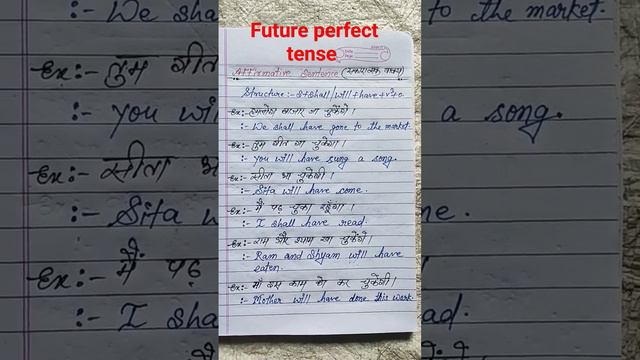 Future perfect
tense
Affirmative Sentence (सकारात्मक वाक्य)
Structure:- S+shall/will+have+v³+o.
Ex:- हमलोग बाजार जा चुकेंगे।
:- We shall have gone to the market.
Ex:- तुम गीत गा चुकेगा।
:- you will have sung a song.
Ex:- सीता आ चुकेगी।
:- Sita will have come.
Ex:- मैं पढ़ चुका रहूँगा।
:- I shall have read.
Ex:- राम और श्याम खा चुकेंगे।
:- Ram and Shyam will have
eaten.
Ex:- माँ इस काम को कर चुकेंगी।
:- Mother will have done this work.